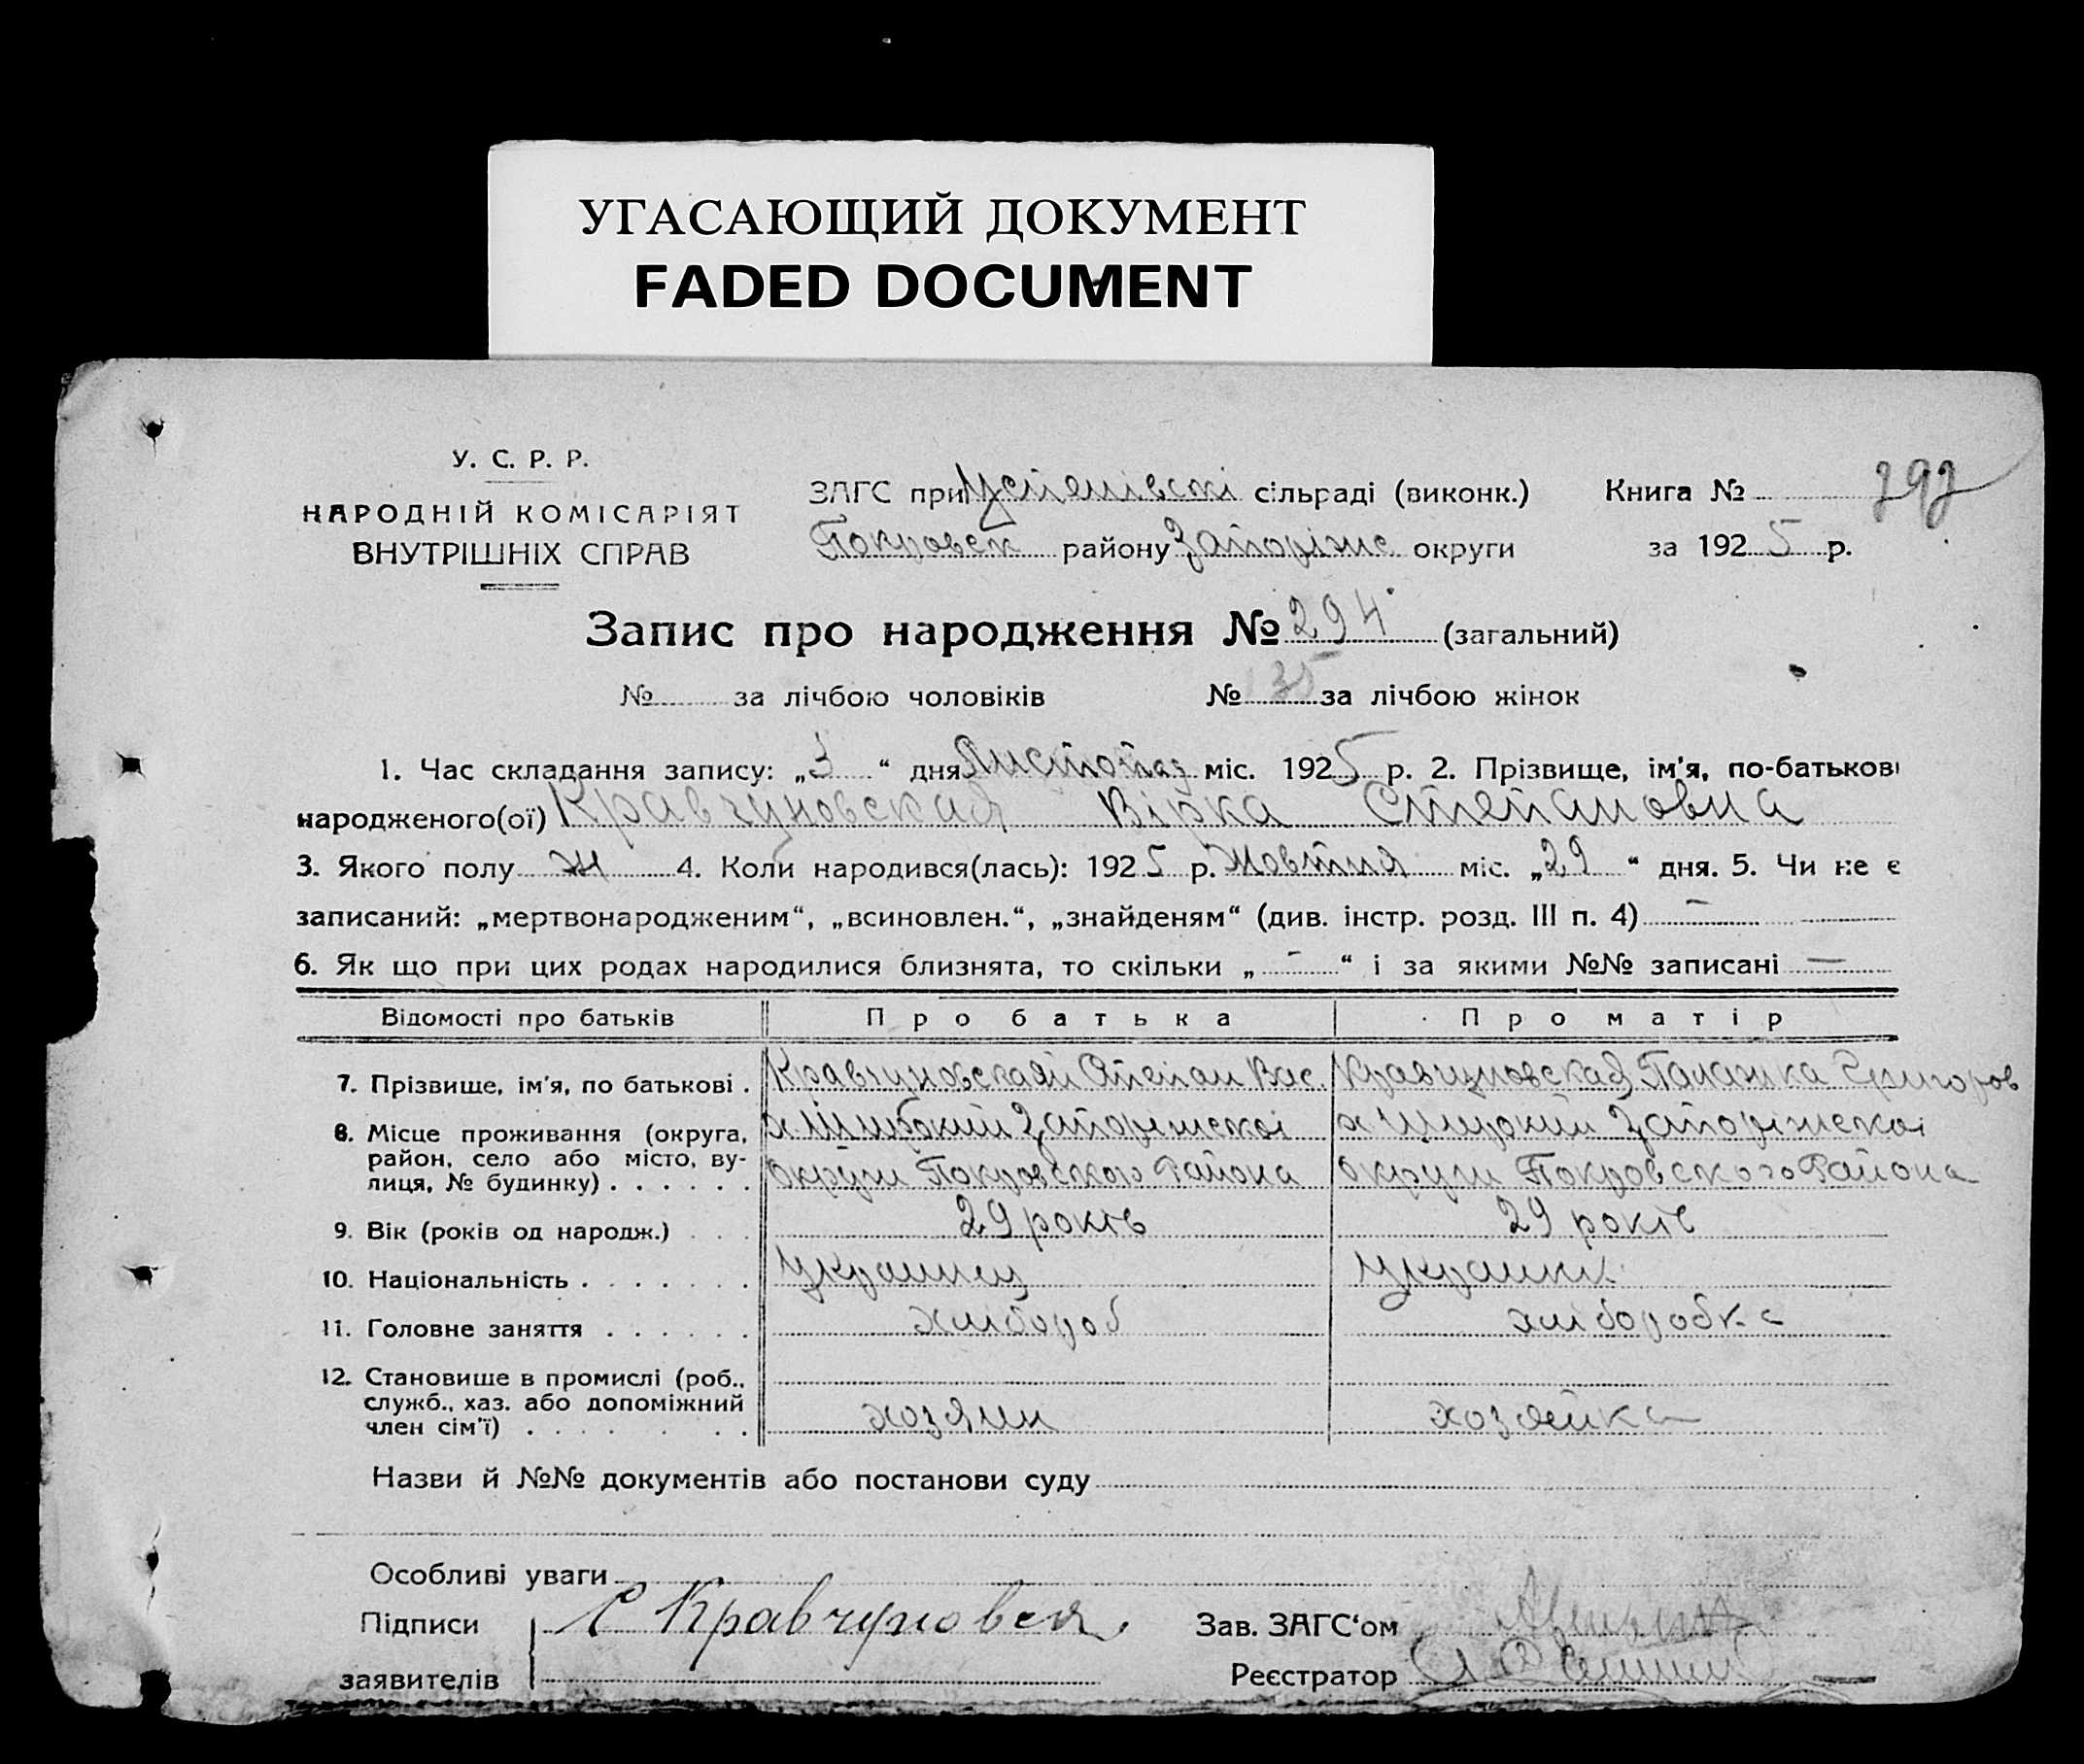 УГАСАЮЩИЙ ДОКУМЕНТ
FADED DOCUMENT
У. С. Р. Р.
НАРОДНІЙ КОМІСАРІЯТ
ВНУТРІШНІХ СПРАВ
ЗАГС при Успенівскі сільраді (виконк.)
Покровск району Запоріжс округи
Книга №
292
за 1925 р.
Запис про народження № 294 (загальний)
№ за лічбою чоловіків № 135 за лічбою жінок
1. Час складання запису: „3“ дня Листопад міс. 1925 р. 2. Прізвище, ім'я, по-батькові
народженого(ої) Кравчуновская Вірка Степановна
3. Якого полу ж 4. Коли народився(лась): 1925 р. Жовтня міс. „29“ дня. 5. Чи не є
записаний: „мертвонародженим“, „всиновлен.“, „знайденям“ (див. інстр. розд. III п. 4) —
6. Як що при цих родах народилися близнята, то скільки „-“ і за якими №№ записані —
Відомості про батьків Про батька Про матір
7. Прізвище, ім'я, по батькові . Степан Вас. Кравчуновская Палажка Григоров
8. Місце проживання (округа, х Запоріжскоі х Широкий Запоріжскоі
район, село або місто, ву-
лиця, № будинку) . . . . . . округи Покровского Района округи Покровского Района
9. Вік (років од народж.) . . . 29 років 29 років
10. Національність . . . . . . . українец українка
11. Головне заняття . . . . . . хлибороб хлиборобка
12. Становише в промислі (роб.,
служб., хаз. або допоміжний
член сім'ї) . . . . . . . хозяин хозяйка
Назви й №№ документів або постанови суду
Особливі уваги
Підписи С Кравчуновск Зав. ЗАГС‘ом
заявителів Реєстратор